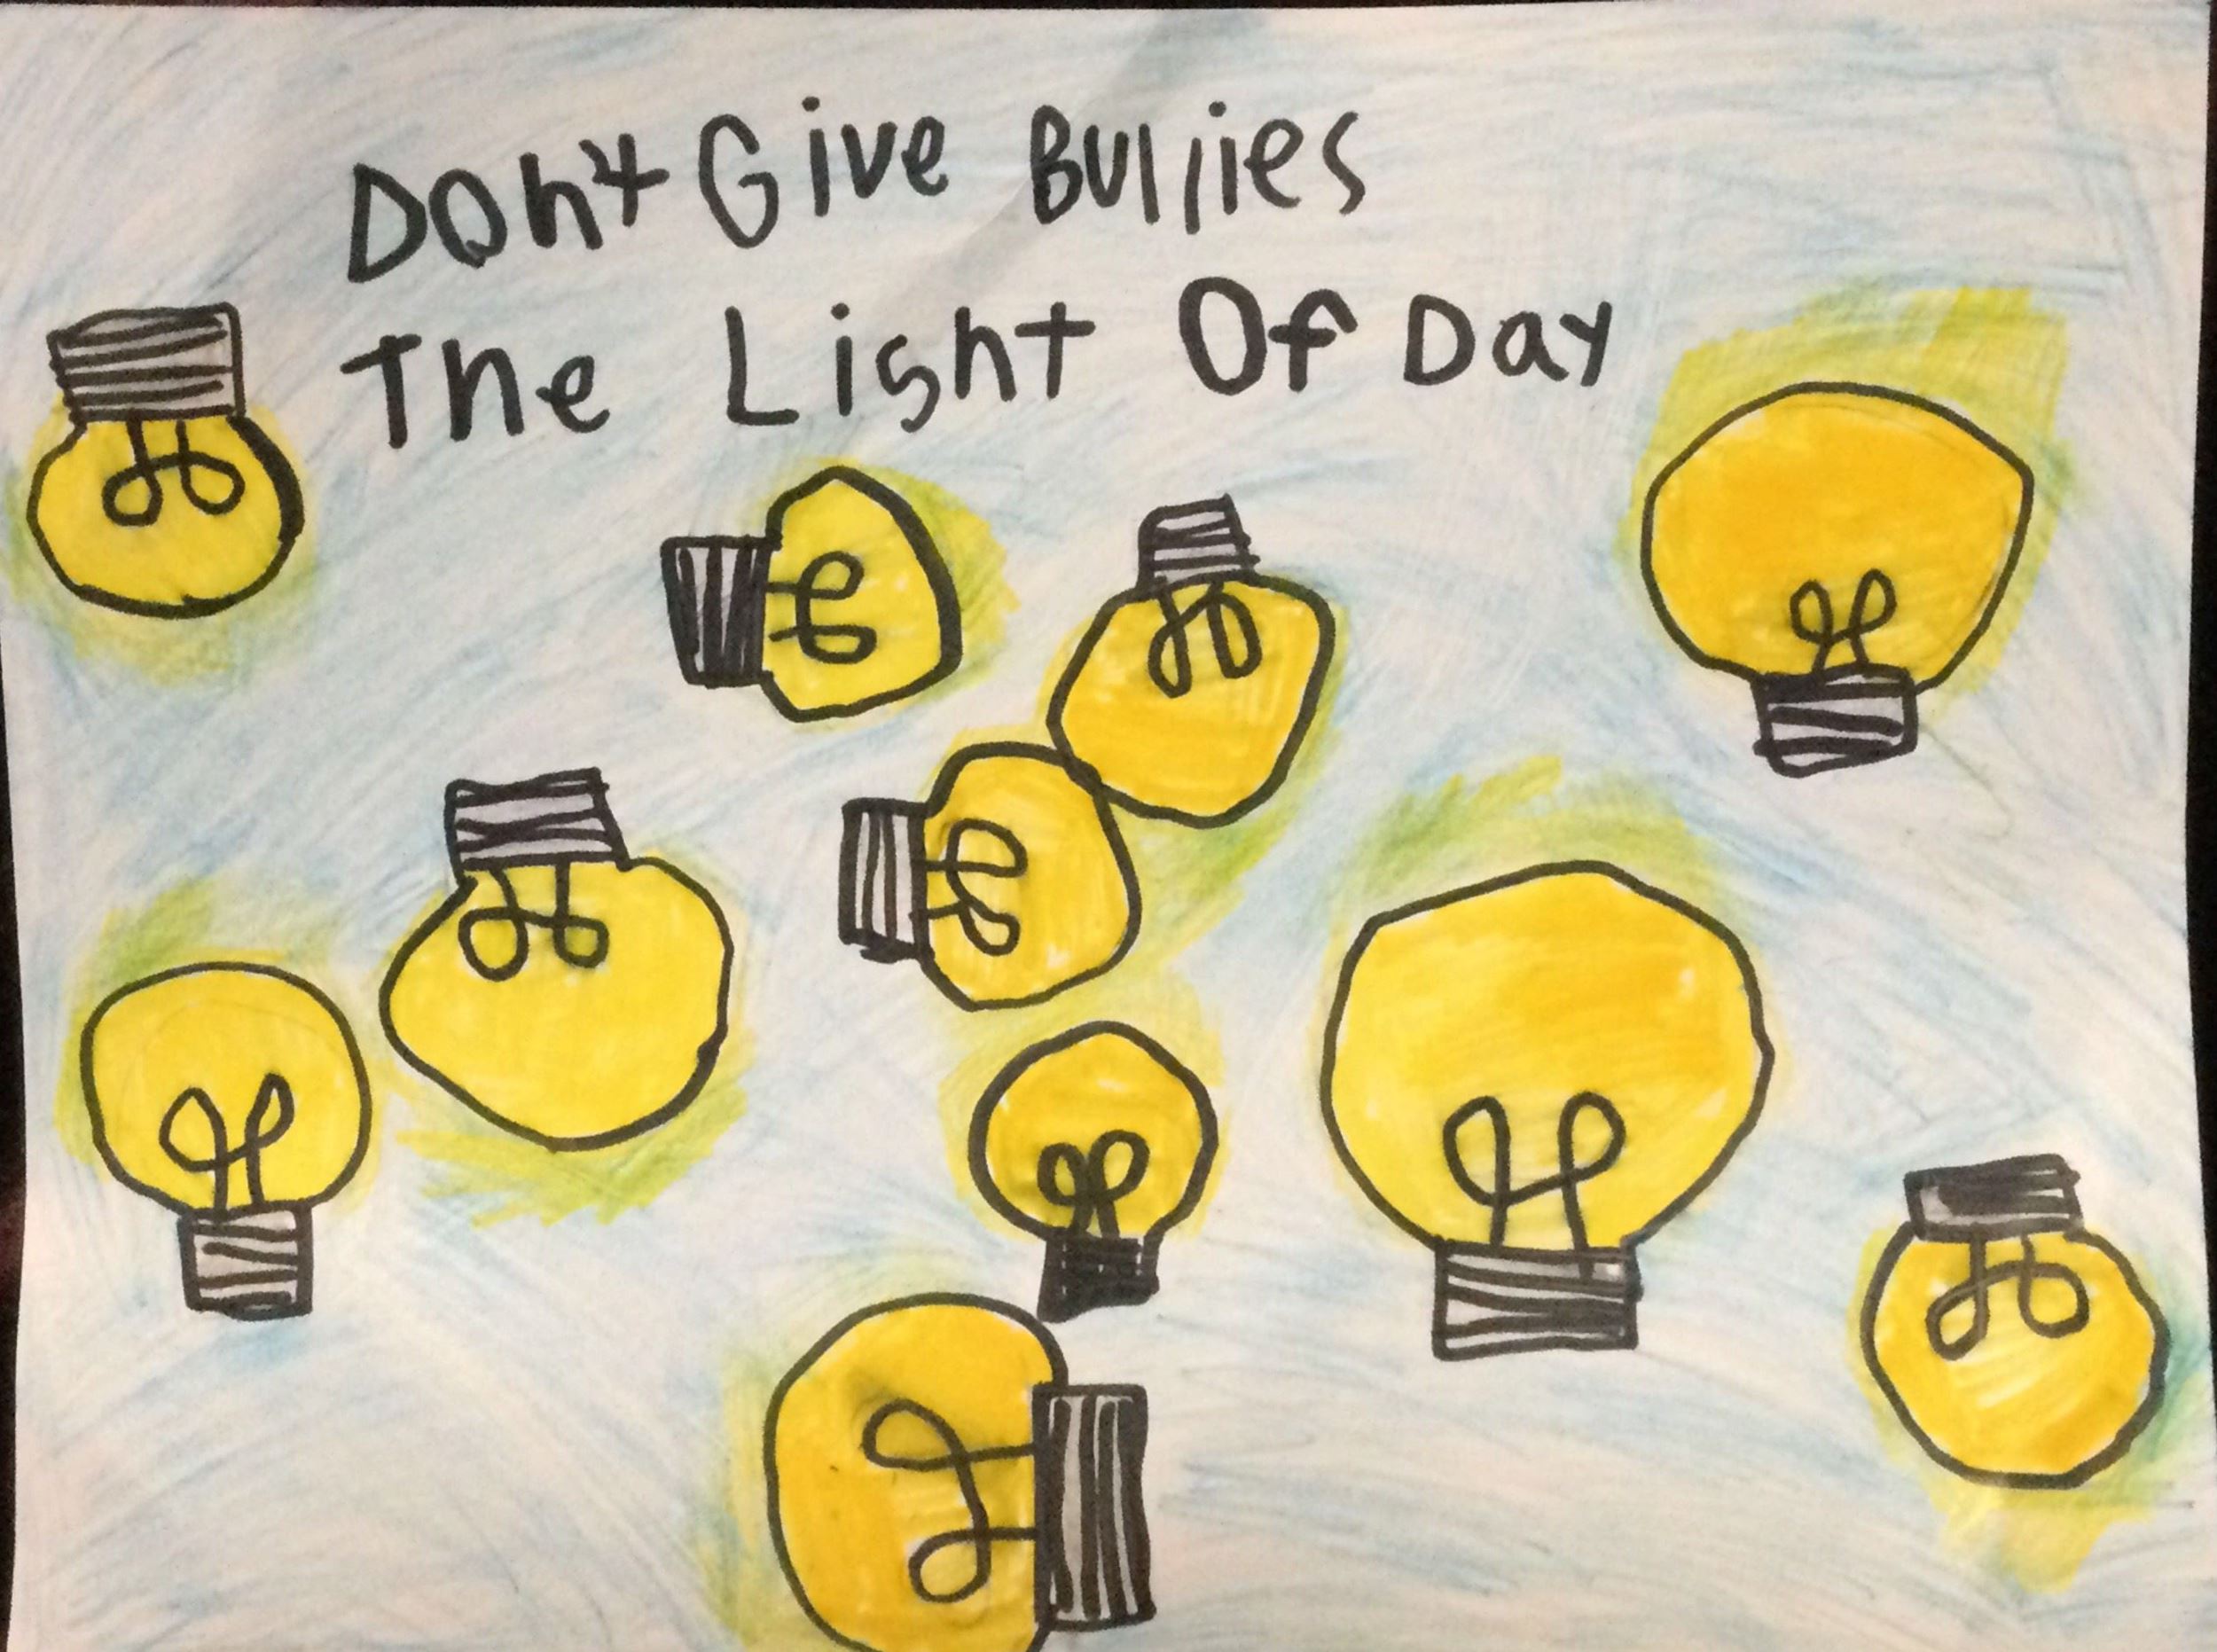 Don't Give Bullies
The Light Of Day